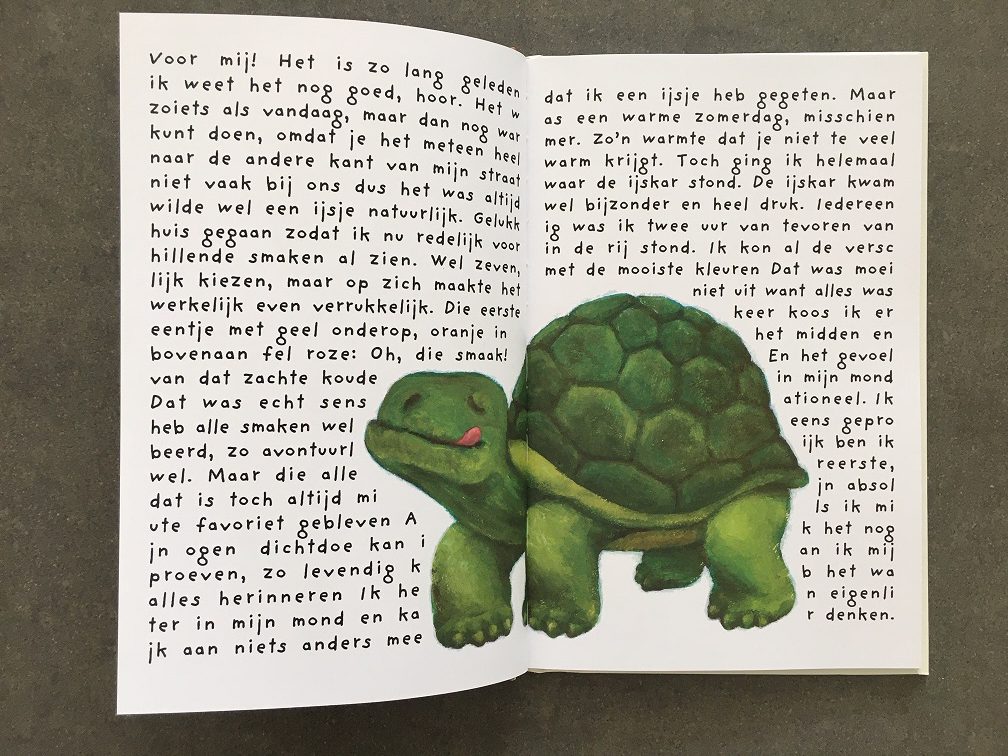 Voor mij! Het is zo lang geleden dat ik een ijsje heb gegeten. Maar
ik weet het nog goed, hoor. Het w as een warme zomerdag, misschien
zoiets als vandaag, maar dan nog war mer. Zo'n warmte dat je niet te veel
kunt doen, omdat je het meteen heel warm krijgt. Toch ging ik helemaal
naar de andere kant van mijn straat waar de ijskar stond. De ijskar kwam
niet vaak bij ons dus het was altijd wel bijzonder en heel druk. Iedereen
wilde wel een ijsje natuurlijk. Gelukk ig was ik twee uur van tevoren van
huis gegaan zodat ik nu redelijk voor in de rij stond. Ik kon al de versc
hillende smaken al zien. Wel zeven, met de mooiste kleuren Dat was moei
lijk kiezen, maar op zich maakte het niet uit want alles was
werkelijk even verrukkelijk. Die eerste keer koos ik er
eentje met geel onderop, oranje in het midden en
bovenaan fel roze: Oh, die smaak! En het gevoel
van dat zachte koude in mijn mond
Dat was echt sens ationeel. Ik
heb alle smaken wel eens gepro
beerd, zo avontuurl ijk ben ik
wel. Maar die alle reerste,
dat is toch altijd mi jn absol
ute favoriet gebleven A ls ik mi
jn ogen dichtdoe kan i k het nog
proeven, zo levendig k an ik mij
alles herinneren Ik he b het wa
ter in mijn mond en ka n eigenli
jk aan niets anders mee r denken.